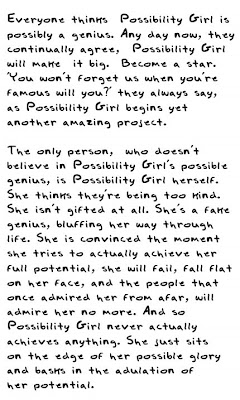 Everyone thinks Possibility Girl is
possibly a genius. Any day now, they
continually agree, Possibility Girl
will make it big. Become a star.
'You won't forget us when you're
famous will you?' they always say,
as Possibility Girl begins yet
another amazing project.

The only person, who doesn't
believe in Possibility Girl's possible
genius, is Possibility Girl herself.
She thinks they're being too kind.
She isn't gifted at all. She's a fake
genius, bluffing her way through
life. She is convinced the moment
she tries to actually achieve her
full potential, she will fail, fall flat
on her face, and the people that
once admired her from afar, will
admire her no more. And so
Possibility Girl never actually
achieves anything. She just sits
on the edge of her possible glory
and basks in the adulation of
her potential.